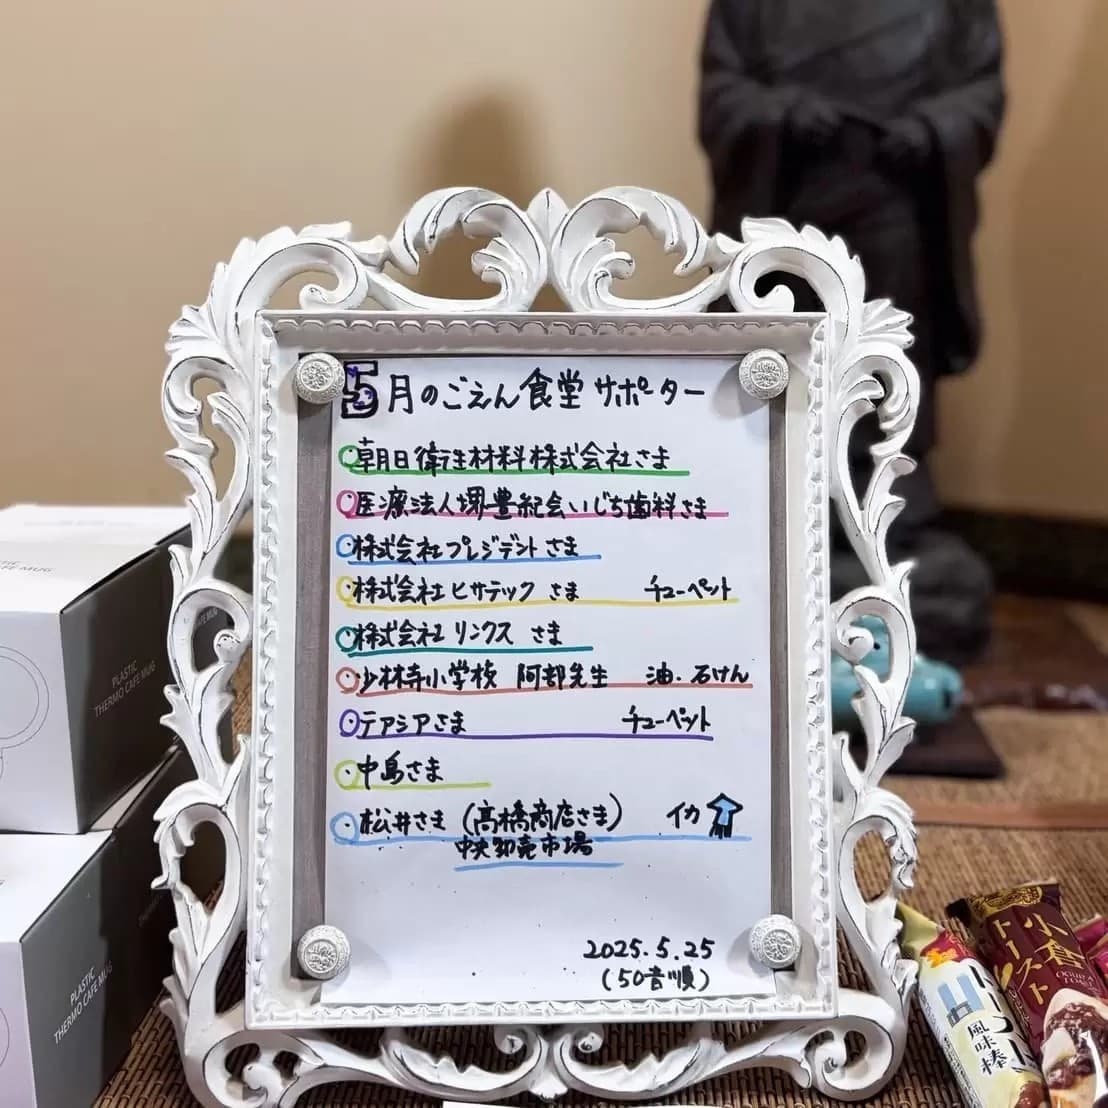 5月のごえん食堂サポーター
朝日衛生材料株式会社さま
医療法人堺豊紀会いじち歯科さま
株式会社プレジデントさま
株式会社ヒサテック さま チューペット
株式会社リンクス さま
少林寺小学校 阿部先生 油・石けん
テアシアさま チューペット
中島さま
松井さま (高橋商店さま) イカ
中央卸売市場
2025.5.25
(50音順)
CAFE MUG
PLASTIC
THERMO CAFE MUG
PLASTIC
THERMO CAFE MUG
小倉
トースト
風味棒